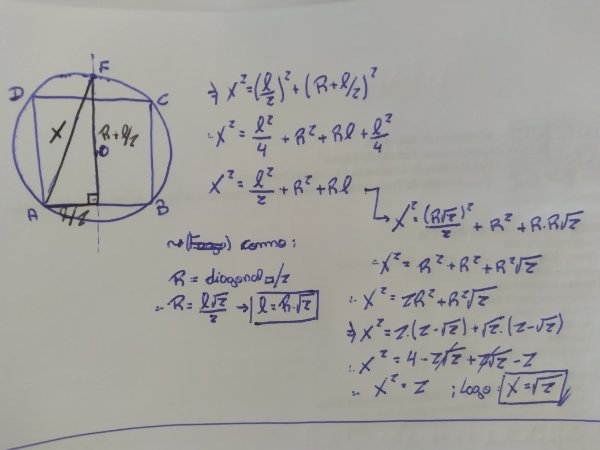 F
D
C
X
R+l/2
O
A
l/2
B
⇒ X² = (l/2)² + (R+l/2)²
∴ X² = l²/4 + R² + Rl + l²/4
X² = l²/2 + R² + Rl
X² = (R√2)²/2 + R² + R.R√2
∴ X² = R² + R² + R²√2
∴ X² = 2R² + R²√2
⇒ X² = 2.(2-√2) + √2.(2-√2)
∴ X² = 4 - 2√2 + 2√2 - 2
∴ X² = 2 ; logo: X = √2
como:
R = diagonal □/2
∴ R = l√2/2 → l = R.√2